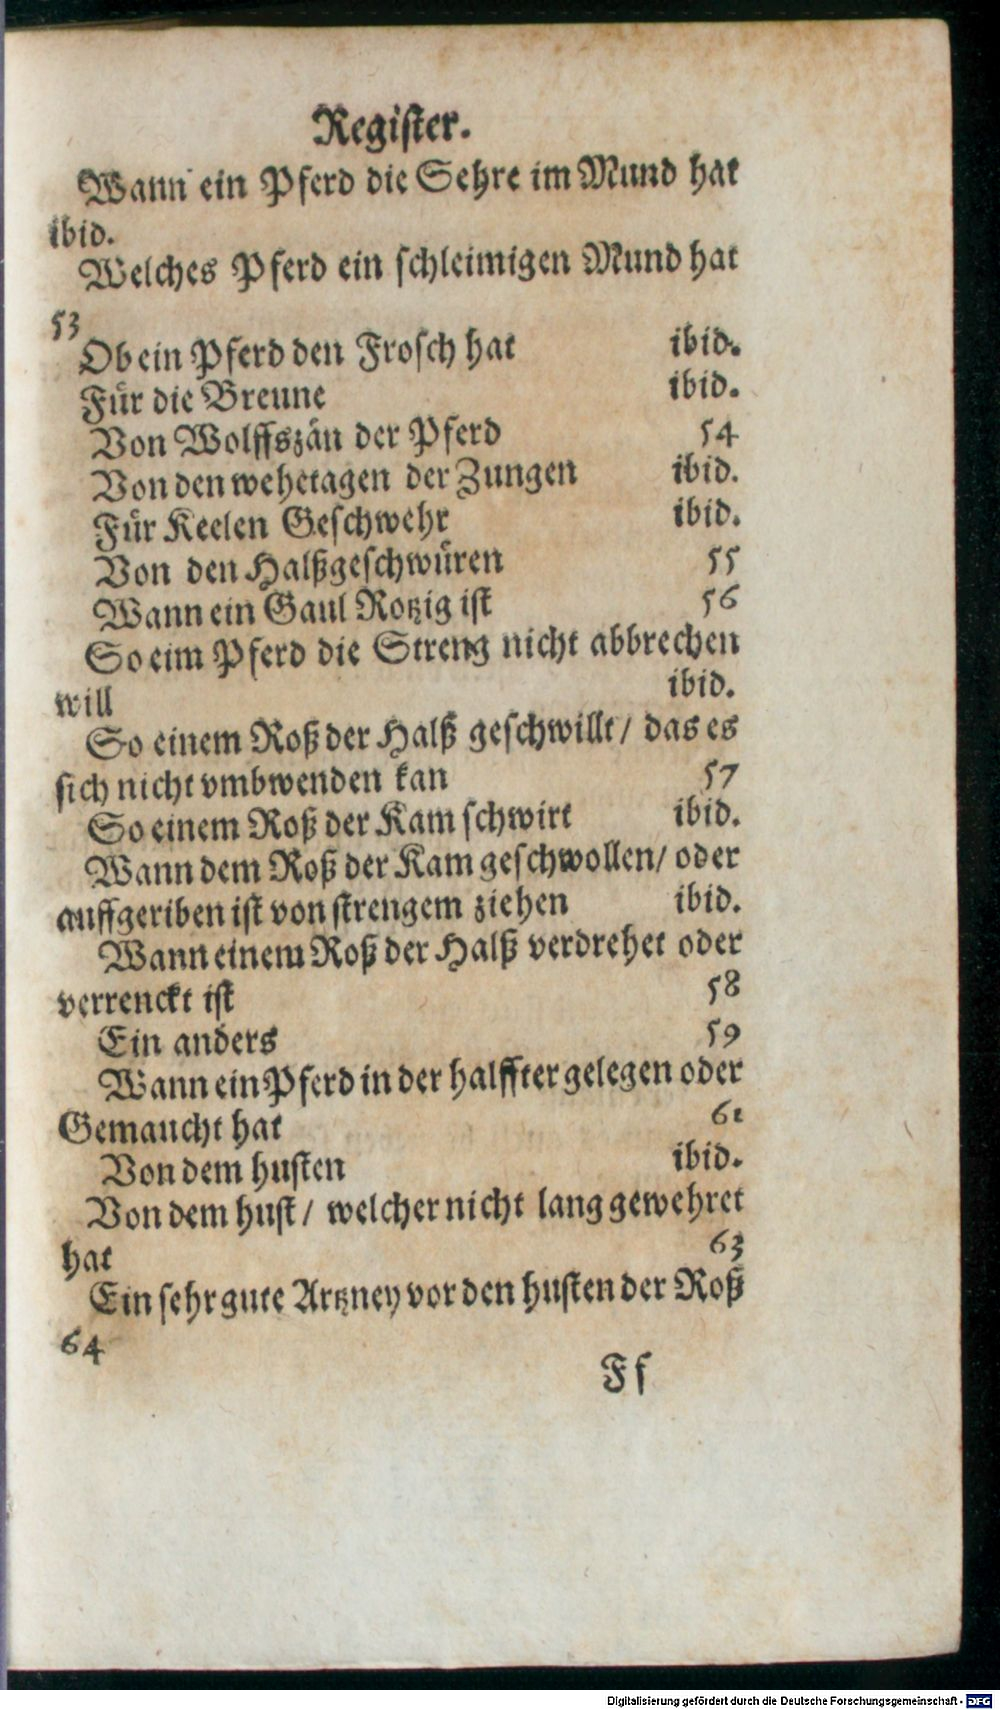 Register.
Wann ein Pferd die Sehre im Mund hat
ibid.
Welches Pferd ein schleimigen Mund hat
53
Ob ein Pferd den Frosch hat ibid.
Für die Breune ibid.
Von Wolffszän der Pferd 54
Von den wehetagen der Zungen ibid.
Für Keelen Geschwehr ibid.
Von den Halßgeschwüren 55
Wann ein Gaul Rotzig ist 56
So eim Pferd die Streng nicht abbrechen
will ibid.
So einem Roß der Halß geschwillt / das es
sich nicht vmbwenden kan 57
So einem Roß der Kam schwirt ibid.
Wann dem Roß der Kam geschwollen / oder
auffgeriben ist von strengem ziehen ibid.
Wann einem Roß der Halß verdrehet oder
verrenckt ist 58
Ein anders 59
Wann ein Pferd in der halffter gelegen oder
Gemaucht hat 61
Von dem husten ibid.
Von dem hust / welcher nicht lang gewehret
hat 63
Ein sehr gute Artzney vor den husten der Roß
64
Ff
Digitalisierung gefördert durch die Deutsche Forschungsgemeinschaft - DFG